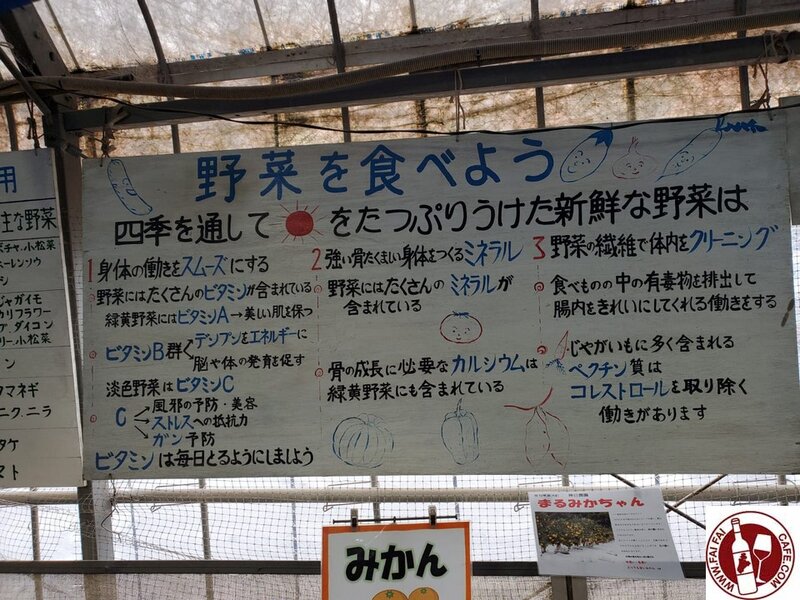 野菜を食べよう
四季を通して をたっぷりうけた新鮮な野菜は
1 身体の働きをスムーズにする
野菜にはたくさんのビタミンが含まれている
緑黄野菜にはビタミンA→美しい肌を保つ
ビタミンB群 デンプンをエネルギーに
脳や体の発育を促す
淡色野菜はビタミンC
C→風邪の予防・美容
→ストレスへの抵抗力
→ガン予防
ビタミンは毎日とるようにしましよう
2 強い骨たくましい身体をつくるミネラル
野菜にはたくさんのミネラルが
含まれている
骨の成長に必要なカルシウムは
緑黄野菜にも含まれている
3 野菜の繊維で体内をクリーニング
食べものの中の有毒物を排出して
腸内をきれいにしてくれる働きをする
じゃがいもに多く含まれる
ペクチン質は
コレストロールを取り除く
働きがあります
用
主な野菜
ボチャ.小松菜
ーレンソウ
ジャガイモ
カリフラワー
ダイコン
リー.小松菜
ン
タマネギ
ニク.ニラ
タケ
マト
みかん
まるみかちゃん
WWW.FAIFAICAFE.COM